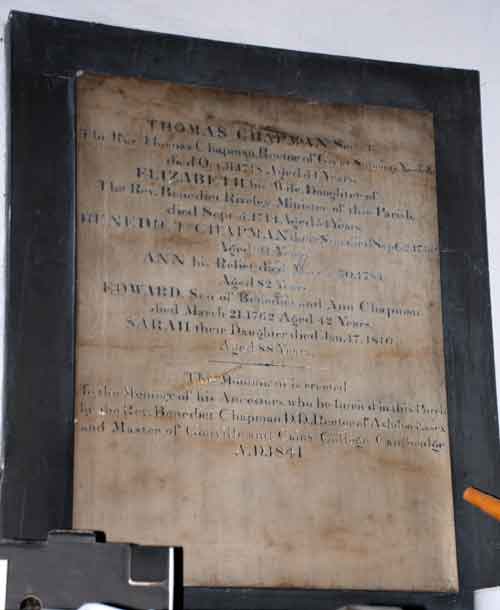 THOMAS CHAPMAN Son of
The Rev. Thomas Chapman, Rector of Great
died Oct. Aged 54 Years.
ELIZABETH his Wife, Daughter of
The Rev. Benedict Minister of this Parish,
died Sept. 1744, Aged 54 Years.
BENEDICT CHAPMAN their Son died Sept.
Aged Years.
ANN his Relict died 30, 1784
Aged 82 Years.
EDWARD, Son of Benedict and Ann Chapman
died March 21, 1762 Aged 42 Years.
SARAH their Daughter died Jan. 17, 1816
Aged 88 Years.
This Monument is erected
To the Memory of his Ancestors who lie buried in this Parish
by the Rev. Benedict Chapman D.D. Rector of Ashdon Essex
and Master of Gonville and Caius College Cambridge
A.D. 1841